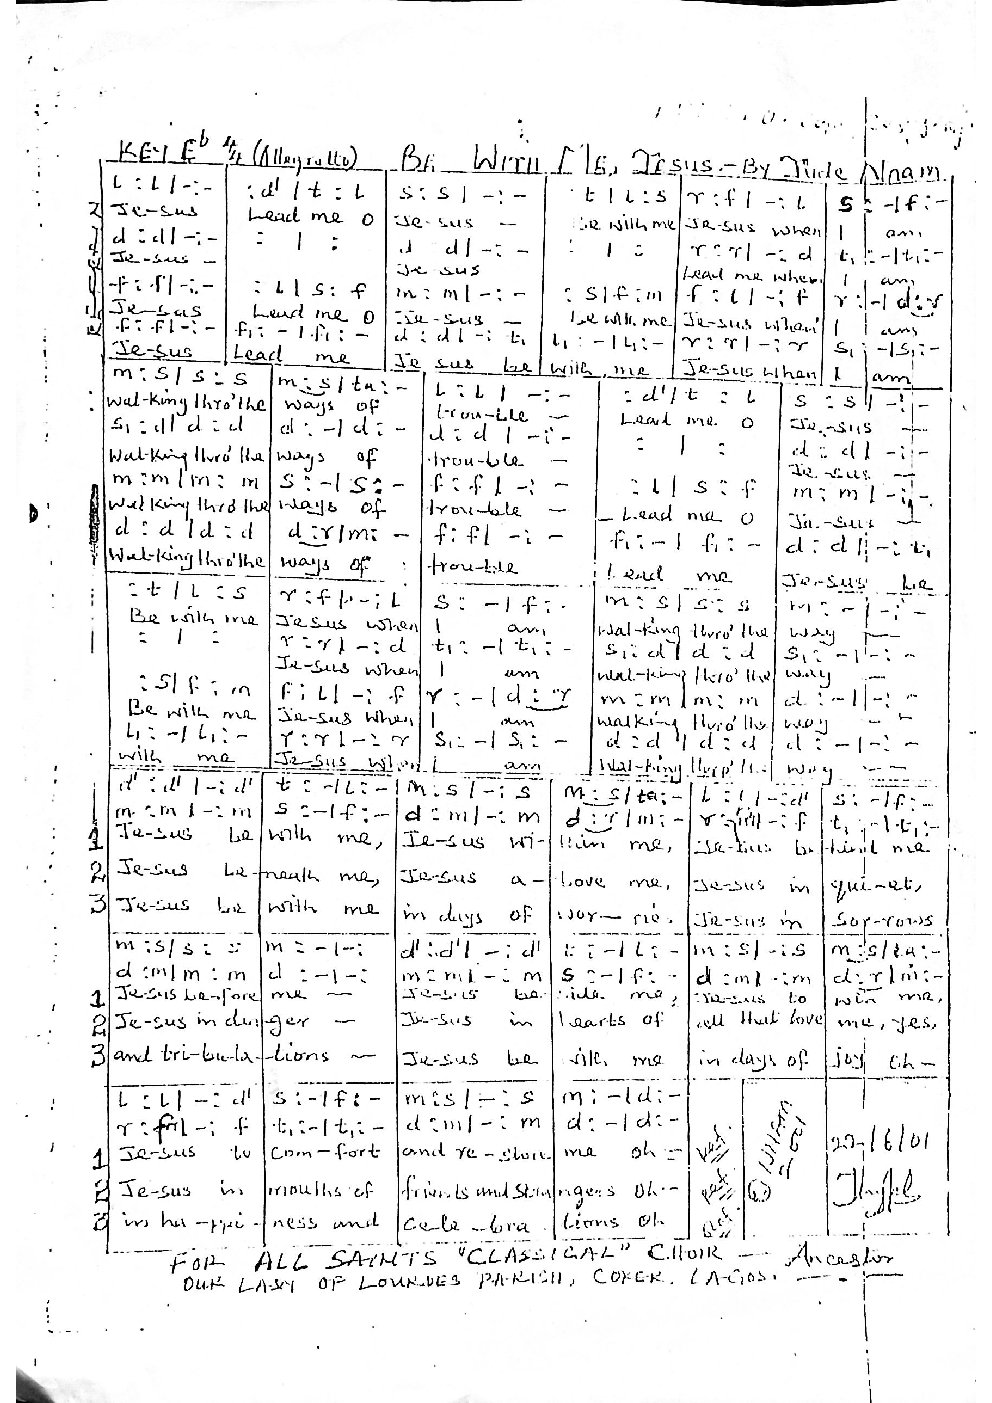 KEY E♭ 4/4 (Allegretto) BE WITH ME, JESUS - By Jude Nnam
L : L | - : - : d' | t : L s : s | - : - t | L : s r : f | - : L s : - | f : -
Je-sus Lead me O Je-sus - be with me Je-sus when I am
d : d | - : - : | : d d | - : - : | : r : r | - : d t₁ : - | t₁ : -
Je-sus - Je sus Lead me when I am
f : f | - : - : L | s : f m : m | - : - : s | f : m f : L | - : f r : - | d : r
Je-sus Lead me O Je-sus - be with me Je-sus when I am
f : f | - : - f₁ : - | f₁ : - d : d | - : t₁ L₁ : - | L₁ : - r : r | - : r s₁ - | s₁ : -
Je-sus Lead me Je sus be with me Je-sus when I am
m : s | s : s m : s | ta : - L : L | - : - : d' | t : L s : s | - : -
wal-king thro' the ways of trou-ble - Lead me O Je-sus -
s₁ : d | d : d d : - | d : - d : d | - : - : | : d : d | - : -
wal-king thro' the ways of trou-ble - Je-sus -
m : m | m : m s : - | s : - f : f | - : - : L | s : f m : m | - : -
wal-king thro the ways of trou-ble - Lead me O Je-sus -
d : d | d : d d : r | m : - f : f | - : - f₁ : - | f₁ : - d : d | - : t₁
wal-king thro' the ways of trou-ble Lead me Je-sus be
: t | L : s r : f | - : L s : - | f : - m : s | s : s m : - | - : -
Be with me Je sus when I am wal-king thro' the way -
: | : r : r | - : d t₁ : - | t₁ : - s₁ : d | d : d s₁ : - | - : -
Je-sus when I am wal-king thro' the way -
: s | f : m f : L | - : f r : - | d : r m : m | m : m d : - | - : -
Be with me Je-sus when I am walking thro' the way -
L₁ : - | L₁ : - r : r | - : r s₁ : - | s₁ : - d : d | d : d d : - | - : -
with me Je-sus when I am wal-king thro' the way -
d' : d' | - : d' t : - | L : - m : s | - : s m : s | ta : - L : L | - : d' s : - | f : -
m : m | - : m s : - | f : - d : m | - : m d : r | m : - r : | - : f t₁ : - | t₁ : -
1 Je-sus be with me, Je-sus wi-thin me, Je-sus be-hind me
2 Je-sus be-neath me, Je-sus a-bove me, Je-sus in qui-et,
3 Je-sus be with me in days of wor-ries. Je-sus in sor-rows
m : s | s : s m : - | - : d' : d' | - : d' t : - | L : - m : s | - : s m : s | ta : -
d : m | m : m d : - | - : m : m | - : m s : - | f : - d : m | - : m d : r | m : -
1 Je-sus be-fore me - Je-sus be side me, Je-sus to with me,
2 Je-sus in dan-ger - Je-sus in hearts of all that love me, yes,
3 and tri-bu-la-tions - Je-sus be with me in days of joy oh-
L : L | - : d' s : - | f : - m : s | - : s m : - | d : -
r : | - : f t₁ : - | t₁ : - d : m | - : m d : - | d : -
1 Je-sus to com-fort and re-store me oh -
2 Je-sus in mouths of friends and strangers oh -
3 in ha-ppi-ness and cele-bra-tions oh
22/6/01
FOR ALL SAINTS "CLASSICAL" CHOIR - Ancestor
OUR LADY OF LOURDES PARISH, COKER, LAGOS.